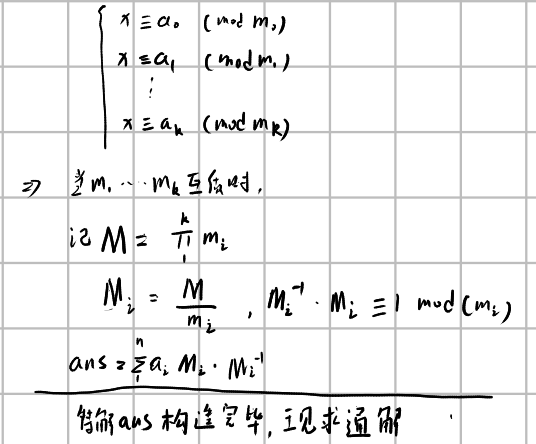 x ≡ a₀ (mod m₀)
x ≡ a₁ (mod m₁)
⋮
x ≡ aₖ (mod mₖ)
⇒ 当 m₁ ⋯ mₖ 互质时,
记 M = ∏₁ᵏ mᵢ
Mᵢ = M / mᵢ , Mᵢ⁻¹ · Mᵢ ≡ 1 mod (mᵢ)
ans = Σ₁ⁿ aᵢ Mᵢ · Mᵢ⁻¹
特解ans构造完毕, 现求通解